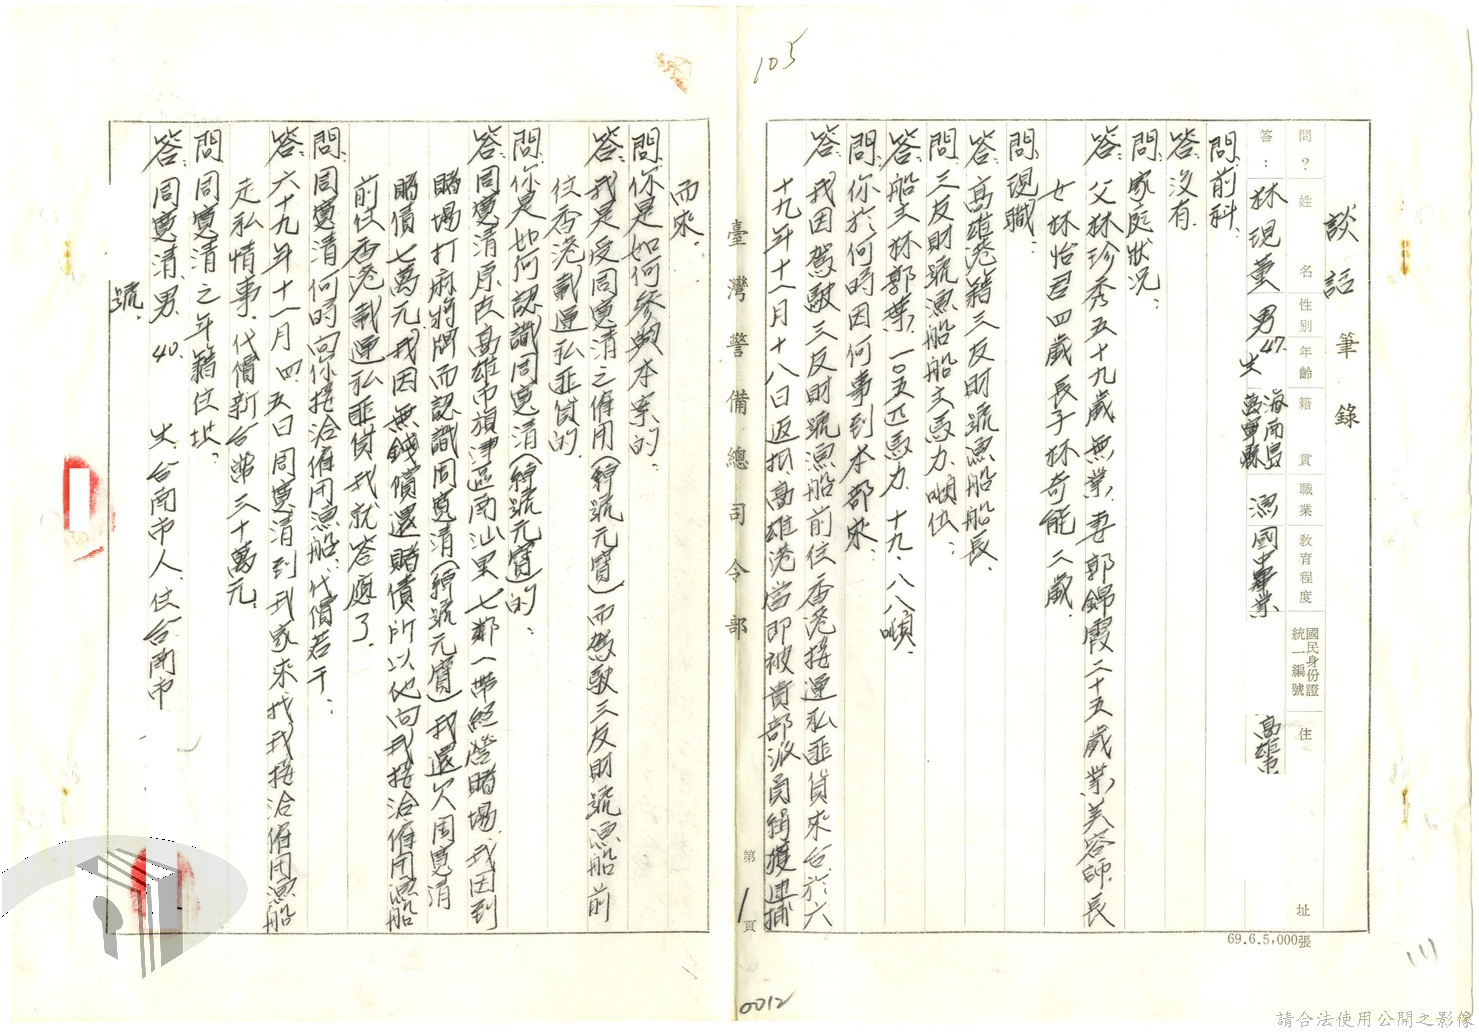 105
談話筆錄
問？姓名性別年齡籍貫職業教育程度國民身份證統一編號住址
答：林現董男47.海南島萬寧縣漁國中畢業高雄市
問：前科：
答：沒有。
問：家庭狀況：
答：父林珍秀五十九歲無業、妻郭錦霞二十五歲業美容師、長
女林怡君四歲長子林奇能二歲。
問：現職：
答：高雄港籍三反財號漁船船長。
問：三反財號漁船船主馬力、噸位：
答：船主林郭葉、一○五匹馬力、十九．八八噸。
問：你於何時因何事到本部來：
答：我因駕駛三反財號漁船前往香港接運私匪貨來台、於六
十九年十一月十八日返抵高雄港當即被貴部派員緝獲逮捕
臺灣警備總司令部
第1頁
而來。
問：你是如何參與本案的：
答：我是受周寬清之僱用（綽號元寶）而駕駛三反財號漁船前
往香港載運私匪貨的。
問：你是如何認識周寬清（綽號元寶）的：
答：周寬清原在高雄市旗津區南汕里七鄰一帶經營賭場、我因到
賭場打麻將牌而認識周寬清（綽號元寶）我還欠周寬清
賭債七萬元、我因無錢償還賭債所以他向我接洽僱用漁船
前往香港載運私匪貨我就答應了。
問：周寬清何時向你接洽僱用漁船、代價若干：
答：六十九年十一月四、五日周寬清到我家來找我接洽僱用漁船
走私情事、代價新台幣三十萬元。
問：周寬清之年籍住址：
答：周寬清、男、40.台南市人、住台南市
號。
69.6.5,000張
0012
請合法使用公開之影像